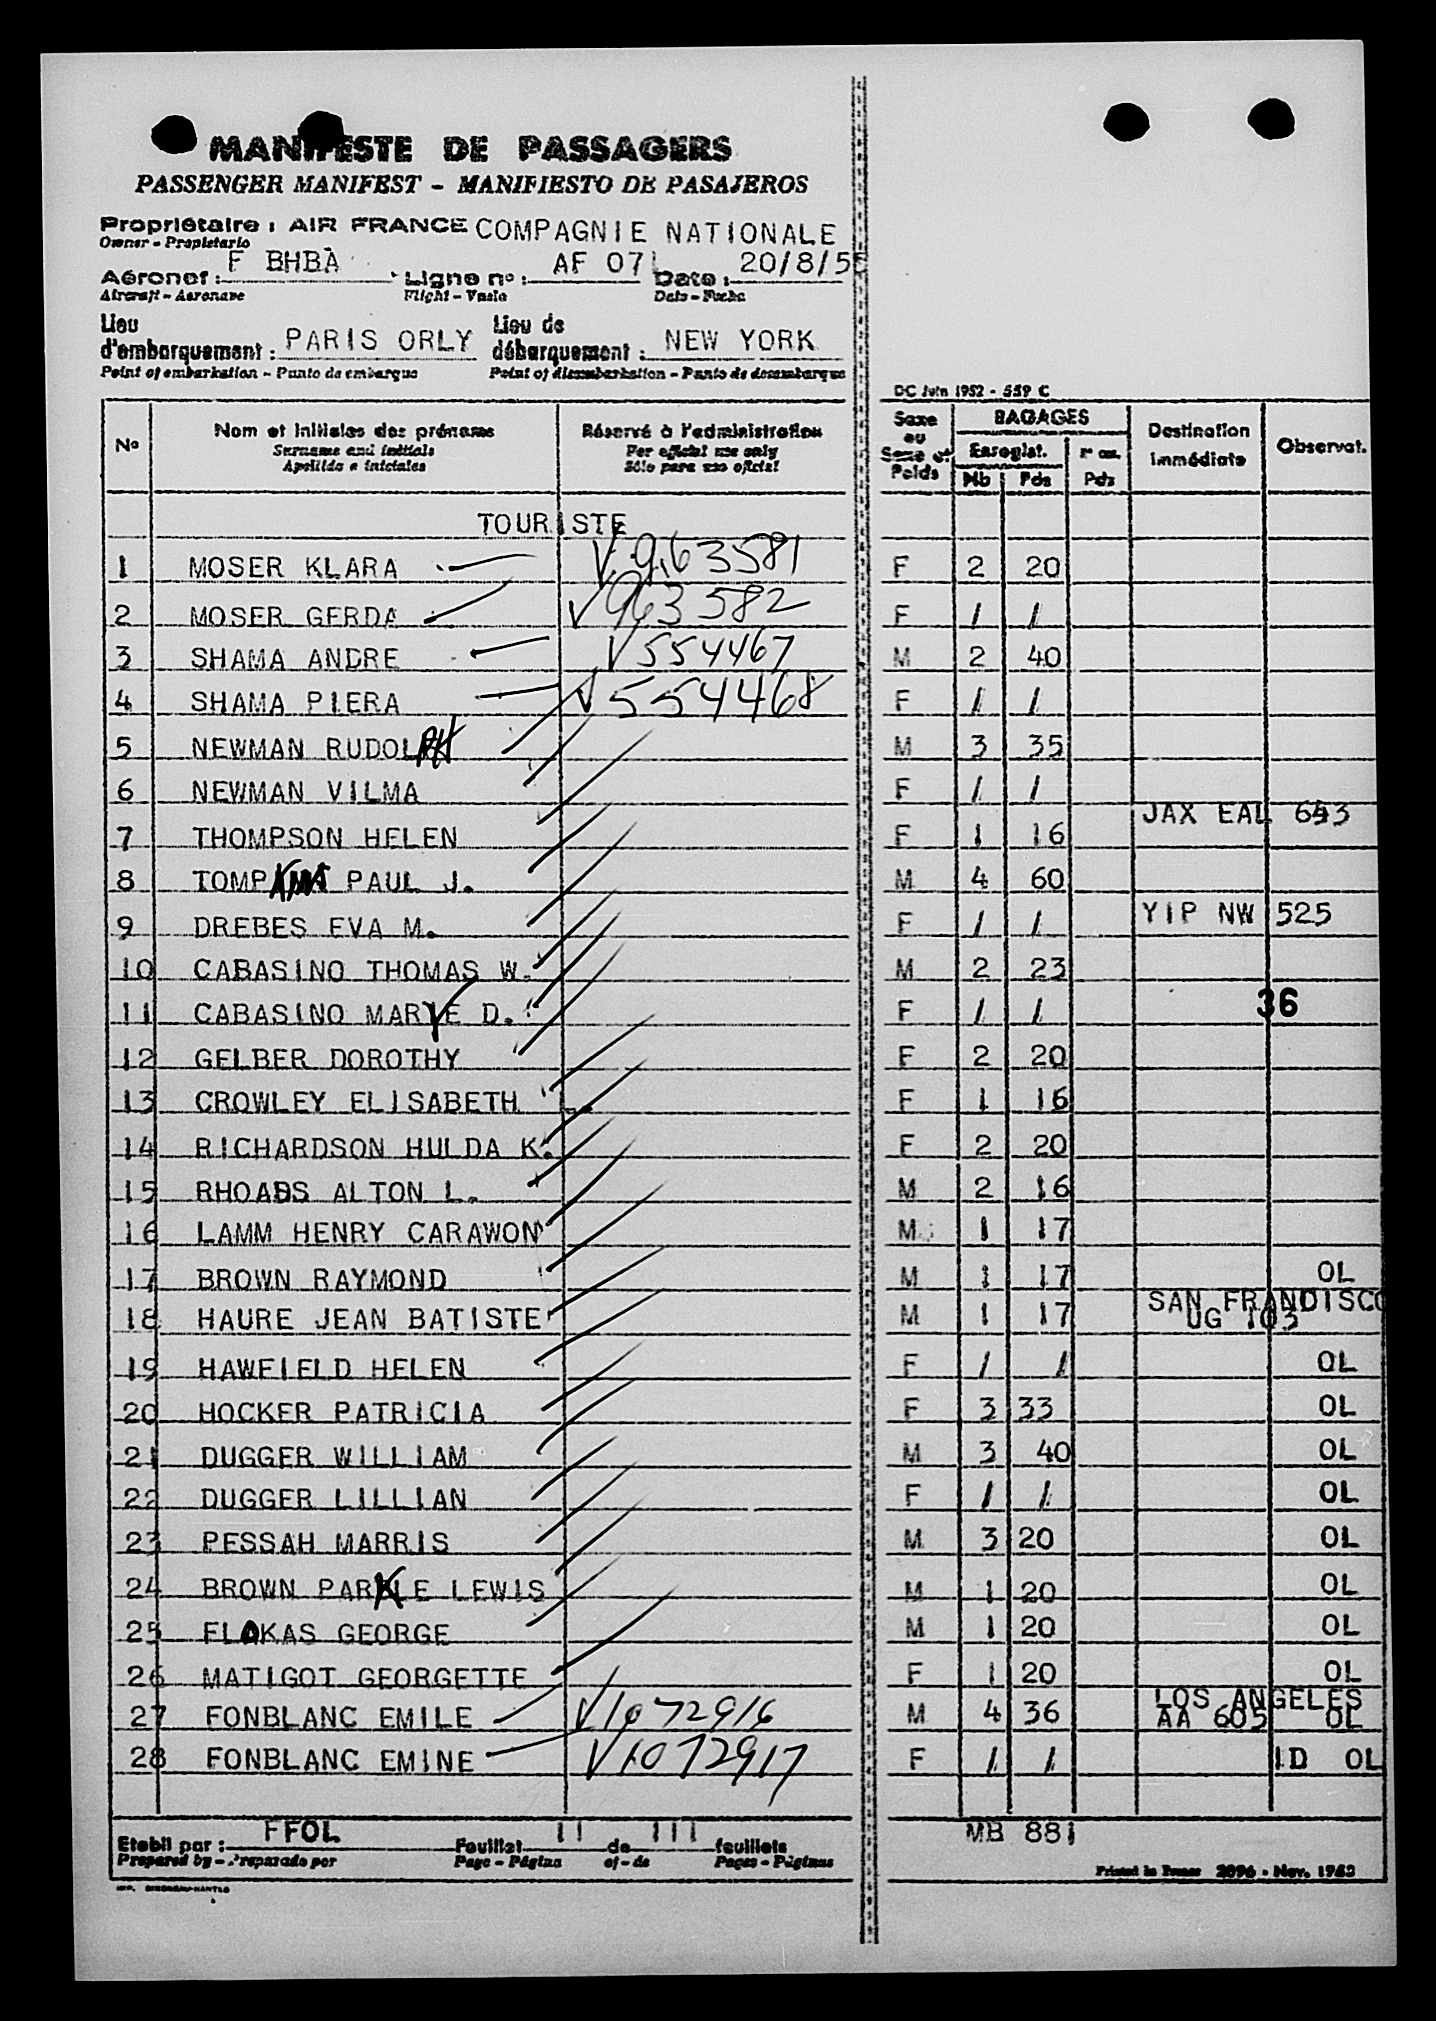 MANIFESTE DE PASSAGERS
PASSENGER MANIFEST - MANIFIESTO DE PASAJEROS
Propriétaire : AIR FRANCE COMPAGNIE NATIONALE
Owner - Propietario
Aéronef : F BHBA Ligne no : AF 071 Date : 20/8/55
Aircraft - Aeronave Flight - Vuelo Date - Fecha
Lieu d'embarquement : PARIS ORLY Lieu de débarquement : NEW YORK
Point of embarkation - Punto de embarque Point of disembarkation - Punto de desembarque
DC Juin 1952 - 559 C
No Nom et initiales des prénoms Réservé à l'administration Sexe ou Sexe et Poids BAGAGES Destination immédiate Observat.
Surname and initials For official use only Enregist.
Apellido e iniciales Sólo para uso oficial Nb Pds Pds
TOURISTE
1 MOSER KLARA V.963581 F 2 20
2 MOSER GERDA V963582 F / /
3 SHAMA ANDRE V554467 M 2 40
4 SHAMA PIERA V554468 F / /
5 NEWMAN RUDOLPH M 3 35
6 NEWMAN VILMA F / /
7 THOMPSON HELEN F 1 16 JAX EAL 653
8 TOMPKINS PAUL J. M 4 60
9 DREBES EVA M. F / / YIP NW 525
10 CABASINO THOMAS W. M 2 23
11 CABASINO MARYE D. F / / 36
12 GELBER DOROTHY F 2 20
13 CROWLEY ELISABETH L. F 1 16
14 RICHARDSON HULDA K. F 2 20
15 RHOADS ALTON L. M 2 16
16 LAMM HENRY CARAWON M 1 17
17 BROWN RAYMOND M 1 17 OL
18 HAURE JEAN BATISTE M 1 17 SAN FRANDISCO UG 103
19 HAWFIELD HELEN F / / OL
20 HOCKER PATRICIA F 3 33 OL
21 DUGGER WILLIAM M 3 40 OL
22 DUGGER LILLIAN F / / OL
23 PESSAH MARRIS M 3 20 OL
24 BROWN PARKLE LEWIS M 1 20 OL
25 FLOKAS GEORGE M 1 20 OL
26 MATIGOT GEORGETTE F 1 20 OL
27 FONBLANC EMILE V1072916 M 4 36 LOS ANGELES AA 605 OL
28 FONBLANC EMINE V1072917 F / / ID OL
Etabli par : FFOL Feuillet 11 de 111 feuillets MB 881
Prepared by - Preparado por Page - Página of - de Pages - Páginas
Printed in France 2096 - Nov. 1953